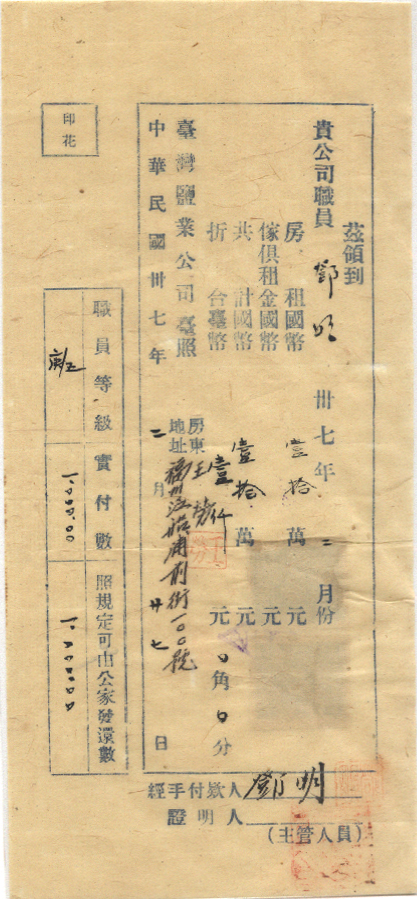 茲領到
貴公司職員 鄧明 卅七年 二 月份
房 租國幣 壹拾 萬 元
傢俱租金國幣 元
共 計國幣 壹拾 萬 元
折 合臺幣 壹仟 元 0 角 0 分
臺灣鹽業公司臺照
房東 王
地址 福州 前街一〇〇號
中華民國卅七年 二 月 廿七 日
經手付欵人 鄧明
證明人
(主管人員)
印花
職員等級 實付數 照規定可由公家發還數
1,000.00 1,000.00